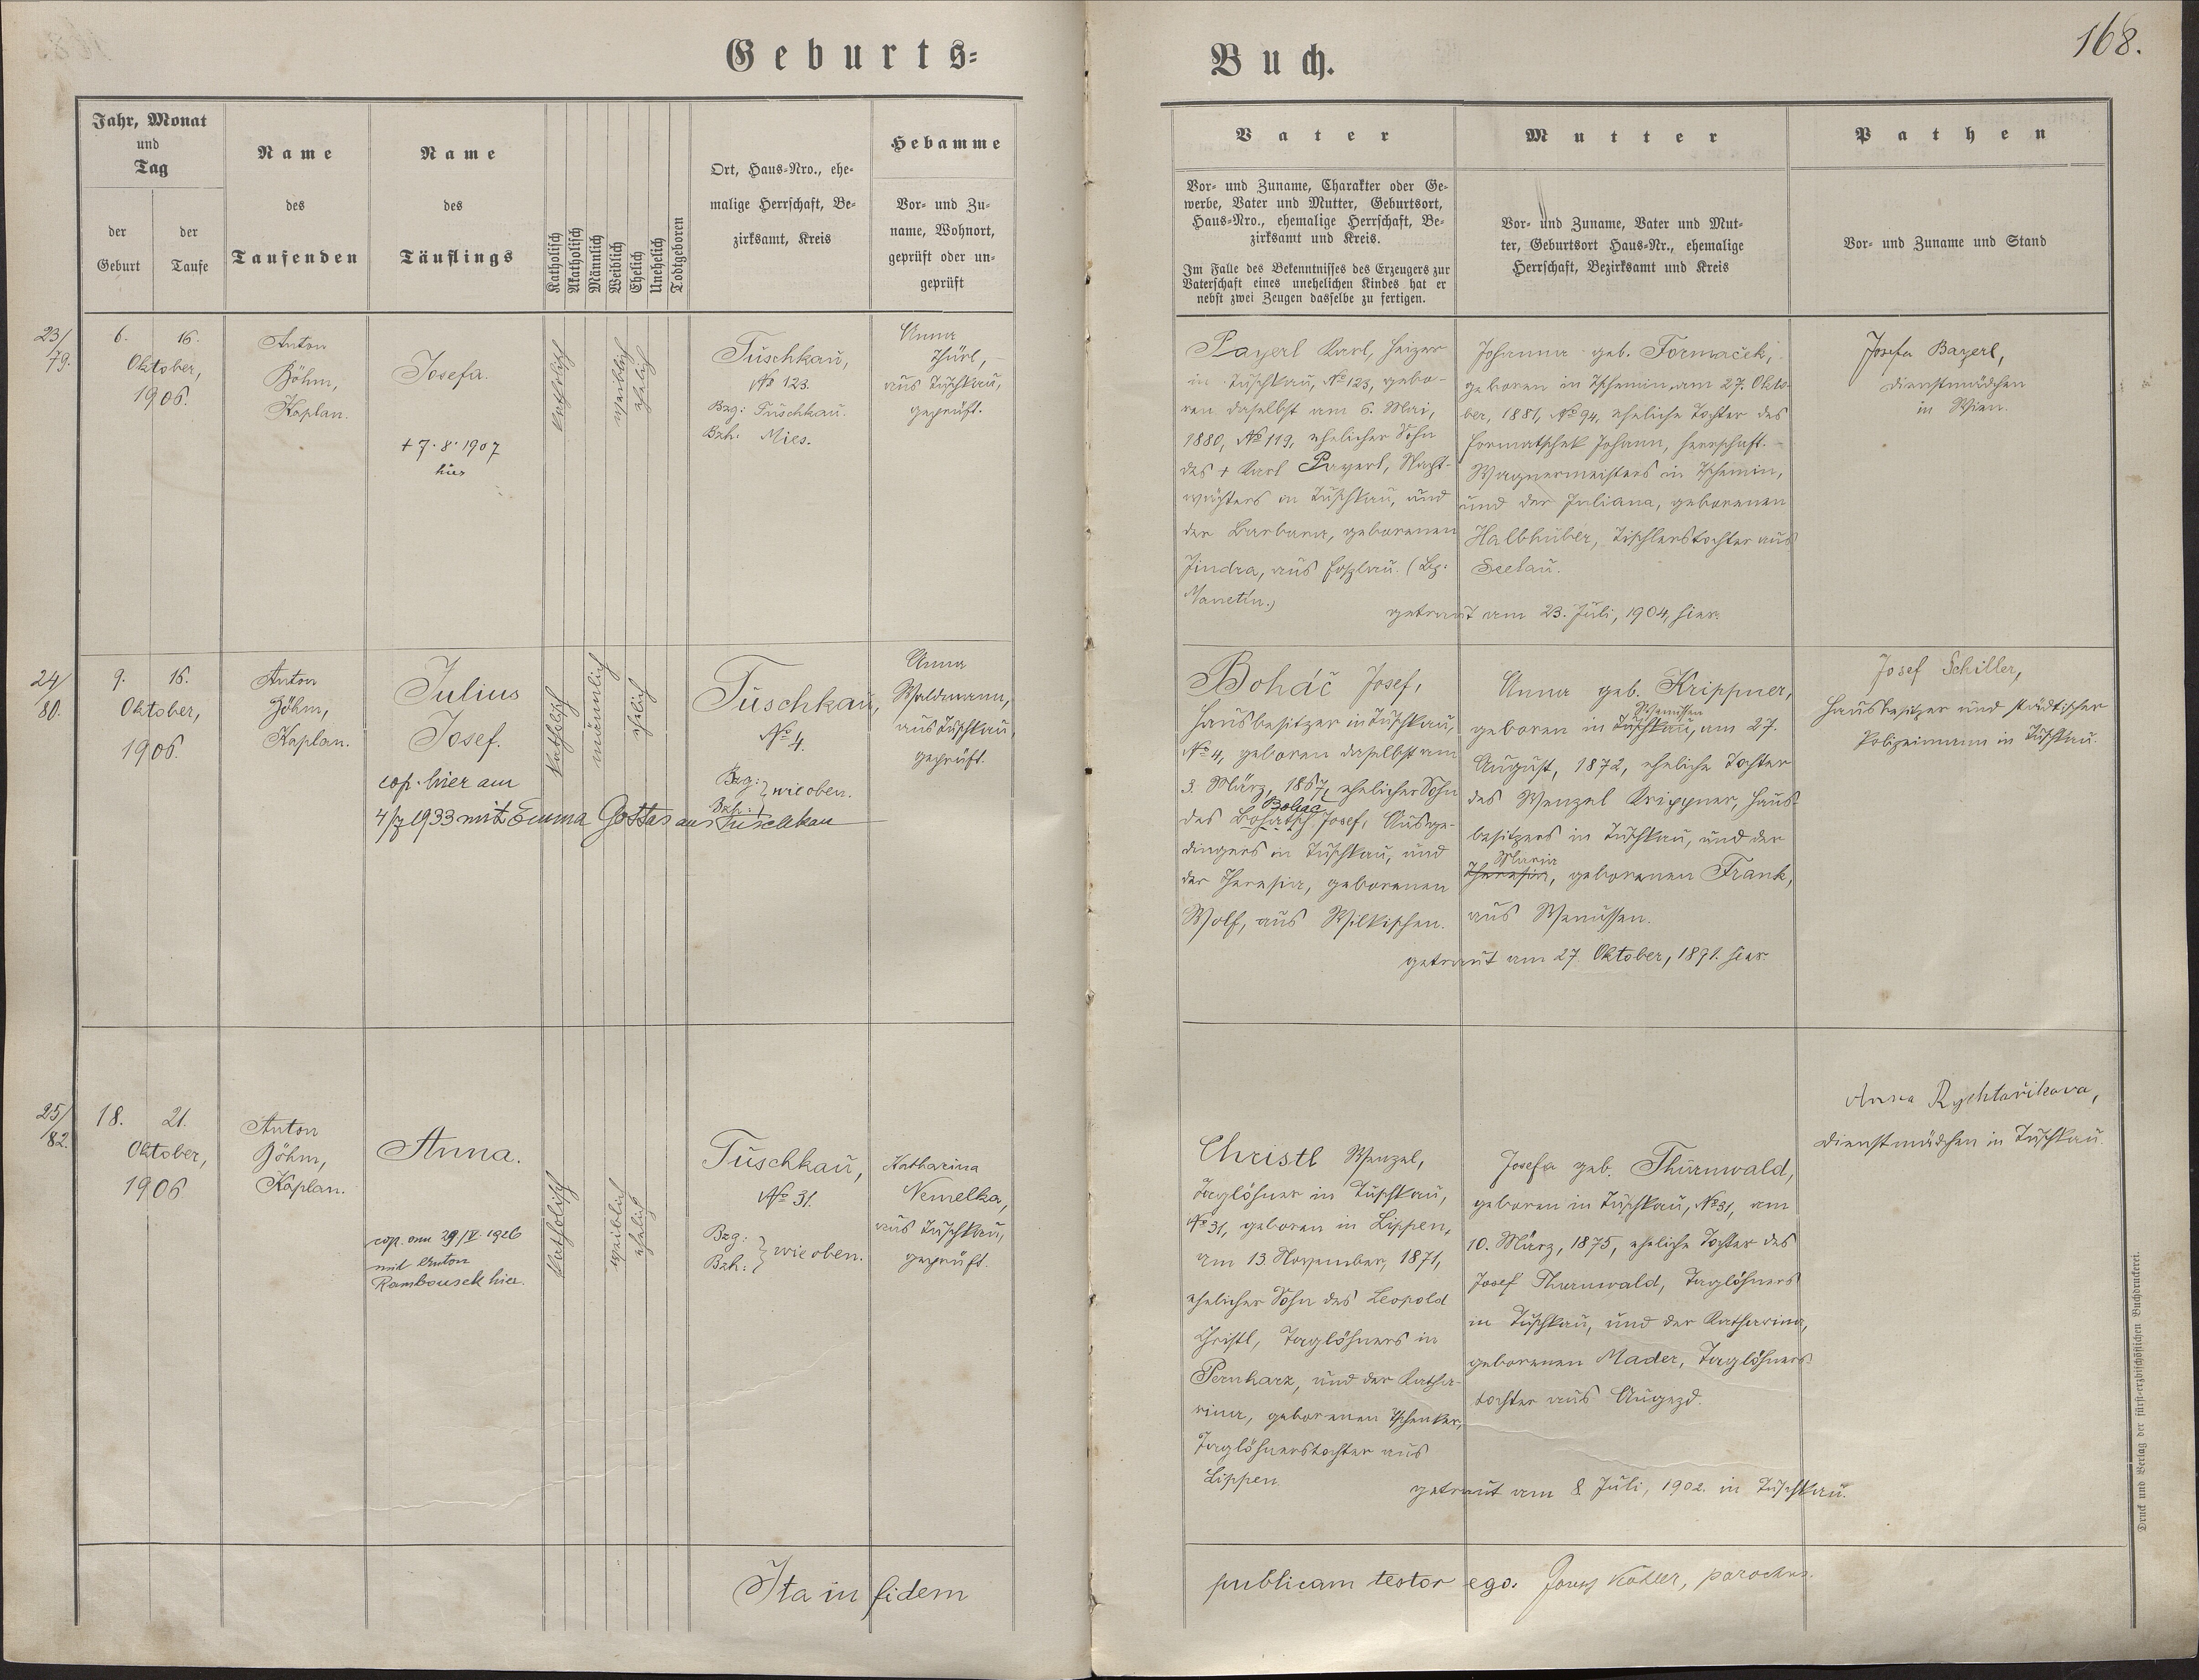 168.
Geburts=
Buch.
Jahr, Monat
und
Tag
der
Geburt
der
Taufe
Name
des
Taufenden
Name
des
Täuflings
Katholisch
Akatholisch
Männlich
Weiblich
Ehelich
Unehelich
Todtgeboren
Ort, Haus-Nro., ehe-
malige Herrschaft, Be-
zirksamt, Kreis
Hebamme
Vor- und Zu-
name, Wohnort,
geprüft oder un-
geprüft
Vater
Vor- und Zuname, Charakter oder Ge-
werbe, Vater und Mutter, Geburtsort,
Haus-Nro., ehemalige Herrschaft, Be-
zirksamt und Kreis.
Im Falle des Bekenntnisses des Erzeugers zur
Vaterschaft eines unehelichen Kindes hat er
nebst zwei Zeugen dasselbe zu fertigen.
Mutter
Vor- und Zuname, Vater und Mut-
ter, Geburtsort Haus-Nr., ehemalige
Herrschaft, Bezirksamt und Kreis
Pathen
Vor- und Zuname und Stand
23/
79.
6. 16.
Oktober,
1906.
Anton
Böhm,
Kaplan.
Josefa.
+ 7. 8. 1907
hier
katholisch
weiblich
ehelich
Tuschkau,
No 123.
Bzg: Tuschkau.
Bzh: Mies.
Anna
Thürl,
aus Tuschkau,
geprüft.
Payerl Karl, Heizer
in Tuschkau, No 123, gebo-
ren daselbst am 6. Mai,
1880, No 119, ehelicher Sohn
des + Karl Payerl, Nacht-
wächters in Tuschkau, und
der Barbara, geborenen
Jindra, aus (Bez.
Manetin.)
Johanna geb. Formaček,
geboren in Tschemin, am 27. Okto-
ber, 1881, No 94, eheliche Tochter des
Formatschek Johann, herrschaft.
Wagnermeisters in Tschemin,
und der Juliana, geborenen
Halbhuber, Tischlerstochter aus
Seelau.
getraut am 23. Juli, 1904, hier.
Josefa Bayerl,
Dienstmädchen
in Wien.
24/
80.
9. 15.
Oktober,
1906.
Anton
Böhm,
Kaplan.
Julius
Josef.
cop. hier am
4/7 1933 mit Emma Gottas aus Tuschkau
katholisch
männlich
ehelich
Tuschkau,
No 4.
Bzg:
Bzh: } wie oben.
Anna
Waldmann,
aus Tuschkau,
geprüft.
Boháč Josef,
Hausbesitzer in Tuschkau,
No 4, geboren daselbst am
3. März, 1867, ehelicher Sohn
Boháč
des Bohatsch Josef, Ausge-
dingers in Tuschkau, und
der Theresia, geborenen
Wolf, aus Wilkischen.
Anna geb. Krippner,
Wenussen
geboren in Tuschkau, am 27.
August, 1872, eheliche Tochter
des Wenzel Krippner, Haus-
besitzers in Tuschkau, und der
Maria
Theresia, geborenen Frank,
aus Wenussen.
getraut am 27 Oktober, 1891. hier.
Josef Schiller,
Hausbesitzer und städtischer
Polizeimann in Tuschkau.
25/
82.
18. 21.
Oktober,
1906
Anton
Böhm,
Kaplan.
Anna.
cop. am 29/V. 1926
mit Anton
Rambousek hier.
katholisch
weiblich
ehelich
Tuschkau,
No 31.
Bzg:
Bzh: } wie oben.
Katharina
Nemelka,
aus Tuschkau,
geprüft.
Christl Wenzel,
Taglöhner in Tuschkau,
No 31, geboren in Lippen,
am 13. November, 1871,
ehelicher Sohn des Leopold
Christl, Taglöhners in
Pernharz, und der Katha-
rina, geborenen Tschenker,
Taglöhnerstochter aus
Lippen.
Josefa geb. Thurnwald,
geboren in Tuschkau, No 31, am
10. März, 1875, eheliche Tochter des
Josef Thurnwald, Taglöhners
in Tuschkau, und der Katharina,
geborenen Mader, Taglöhners-
tochter aus Augezd.
getraut am 8 Juli, 1902. in Tuschkau.
Anna Rychtařikova,
Dienstmädchen in Tuschkau.
Ita in fidem
publicam testor ego. Josef Köhler, parochus.
Druck und Verlag der fürst-erzbischöflichen Buchdruckerei.